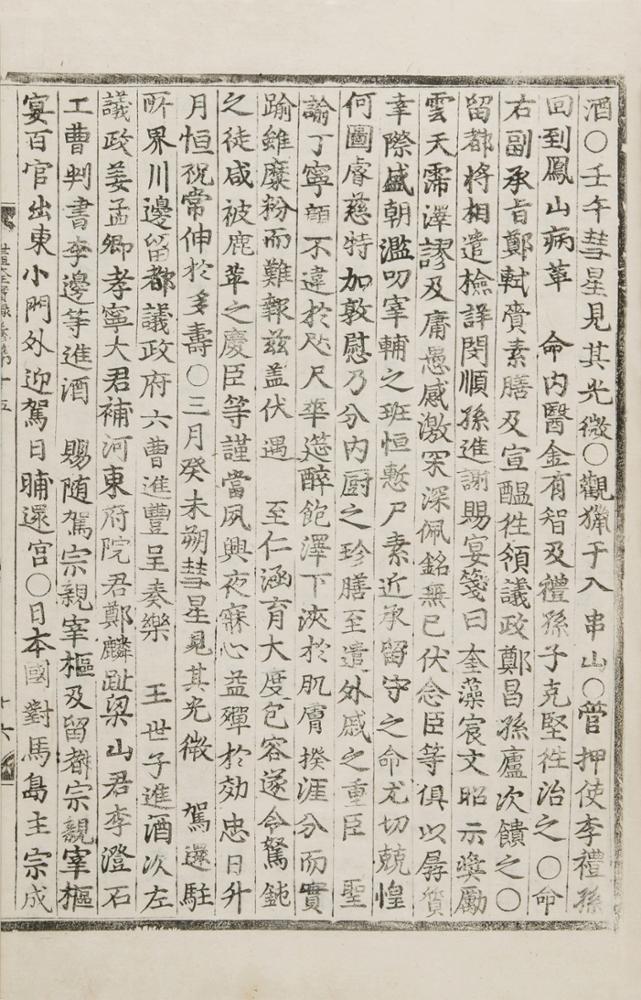 酒○壬午彗星見其光微○觀獵于入串山○管押使李禮孫
回到鳳山病革 命內醫金有智及禮孫子克堅徃治之○命
右副承旨鄭軾賫素膳及宣醞徃領議政鄭昌孫廬次饋之○
留都將相遣檢詳閔順孫進謝賜宴箋曰奎藻宸文昭示奬勵
雲天霈澤謬及庸愚感激罙深佩銘無已伏念臣等俱以孱質
幸際盛朝濫叨宰輔之班恒慙尸素近承留守之命尤切兢惶
何圖睿慈特加敦慰乃分內厨之珍膳至遣外戚之重臣 聖
諭丁寧顔不違於咫尺華筵醉飽澤下浹於肌膚揆涯分而實
踰雖糜粉而難報玆盖伏遇 至仁涵育大度包容遂令駑鈍
之徒咸被鹿苹之慶臣等謹當夙興夜寐心益殫於効忠日升
月恒祝常伸於多壽○三月癸未朔彗星見其光微 駕還駐
所界川邊留都議政府六曹進豐呈奏樂 王世子進酒次左
議政姜孟卿孝寧大君補河東府院君鄭麟趾梁山君李澄石
工曹判書李邊等進酒 賜随駕宗親宰樞及留都宗親宰樞
宴百官出東小門外迎駕日晡還宮○日本國對馬島主宗成
世祖實錄卷第十五
十六